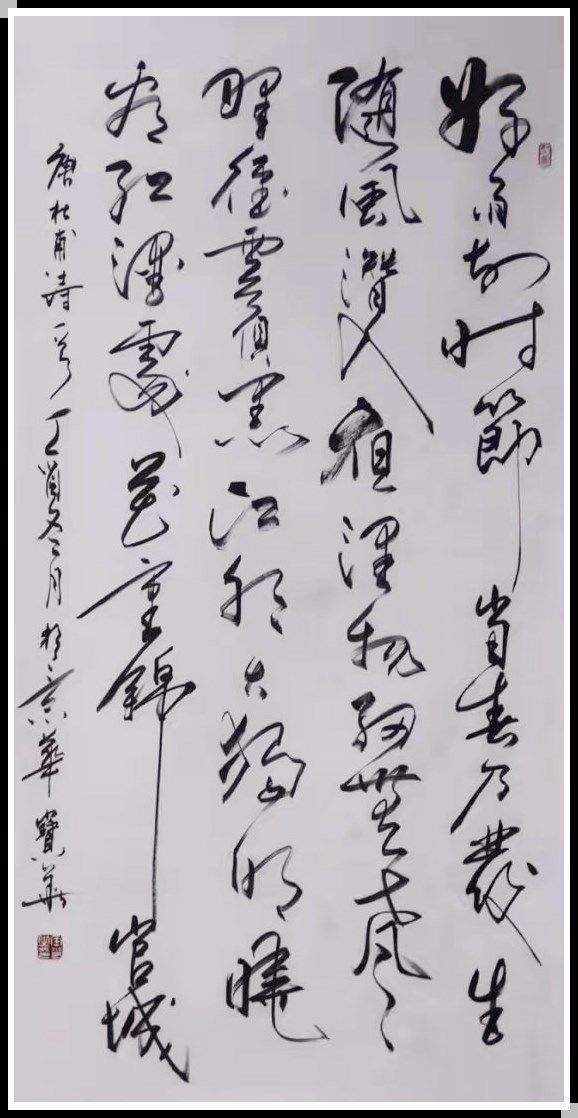 好雨知时節當春乃發生
随風潛入夜潤物細無聲
野徑雲俱黑江船火獨明曉
看紅濕處花重錦官城
唐杜甫詩一首丁酉冬月於京華寶華